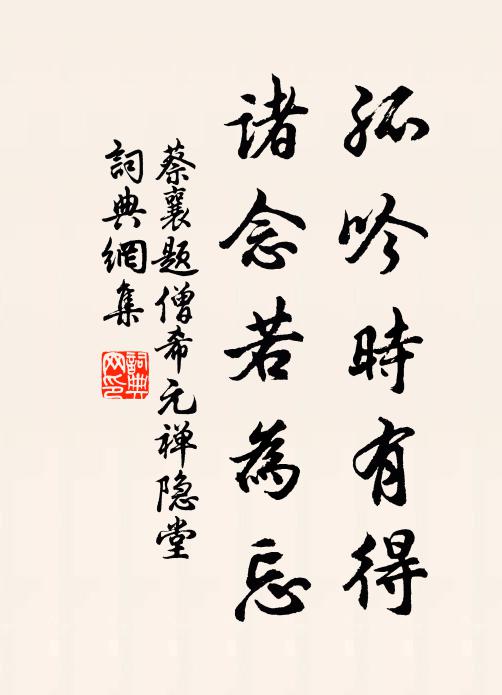 孤吟時有得
諸念若為忘
蔡襄题僧希元禅隐堂
詞典網集
詞典网印